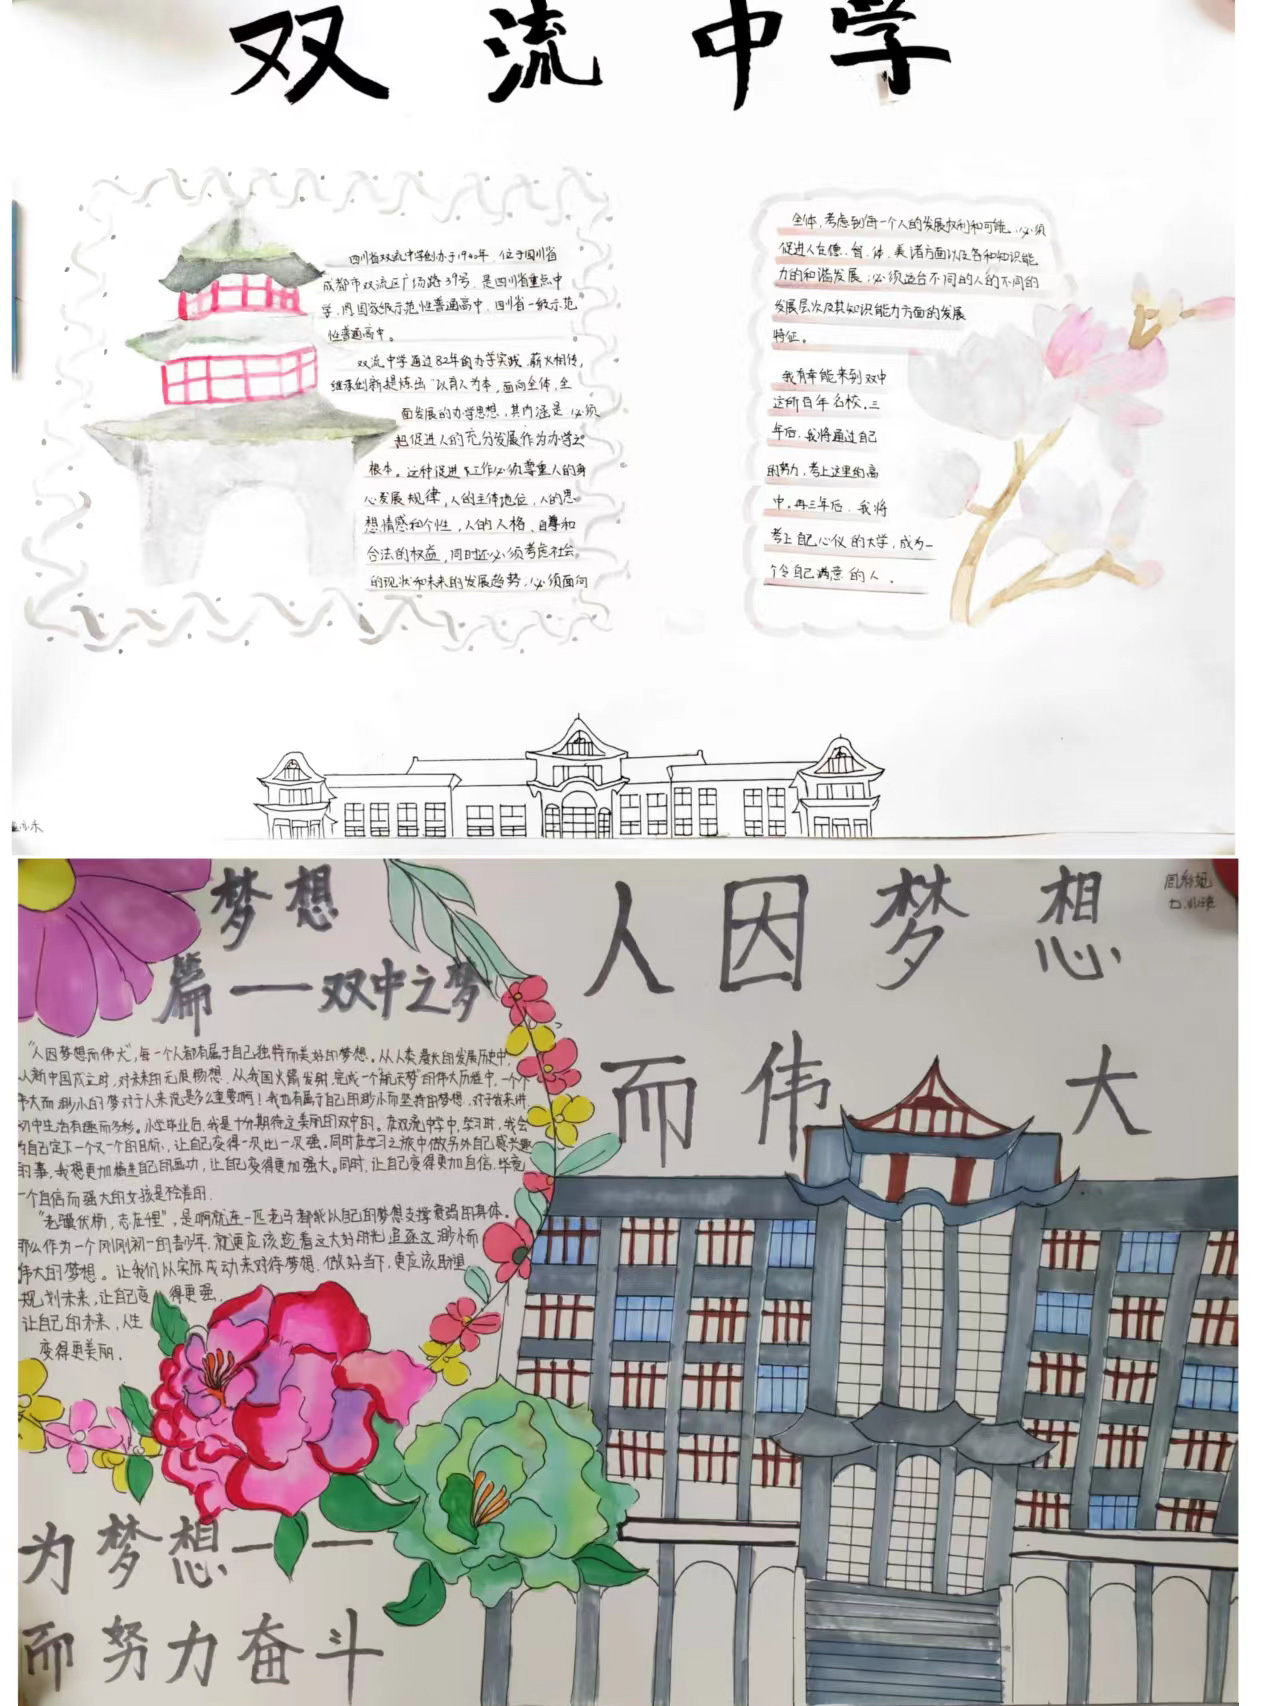 双流中学
四川省双流中学创办于1940年，位于四川省
成都市双流区广场路39号，是四川省重点中
学，国家级示范性普通高中，四川省一级示范
性普通高中。
双流中学通过82年的办学实践，薪火相传，
继承创新提炼出“以育人为本，面向全体，全
面发展的办学思想，其内涵是：必须
把促进人的充分发展作为办学之
根本。这种促进工作必须尊重人的身
心发展规律，人的主体地位，人的思
想情感和个性，人的人格、自尊和
合法的权益，同时还必须考虑社会
的现状和未来的发展趋势，必须面向
全体，考虑到每一个人的发展权利和可能，必须
促进人在德、智、体、美诸方面以及各种知识能
力的和谐发展；必须适合不同的人的不同的
发展层次及其知识能力方面的发展
特征。
我有幸能来到双中
这所百年名校，三
年后，我将通过自己
的努力，考上这里的高
中。再三年后，我将
考上自己心仪的大学，成为一
个令自己满意的人。
梦想
篇——双中之梦
“人因梦想而伟大”，每一个人都有属于自己独特而美好的梦想。从人类漫长的发展历史中，
从新中国成立时，对未来的无限畅想，从我国火箭发射，完成一个“航天梦”的伟大历程中，一个个
伟大而渺小的梦对于人来说是多么重要啊！我也有属于自己的渺小而坚持的梦想，对于我来讲，
初中生活有趣而多彩。小学毕业后，我是十分期待这美丽的双中的。在双流中学中，学习时，我会
为自己定下一个又一个的目标，让自己变得一次比一次强，同时在学习之旅中做另外自己感兴趣
的事，我想更加精进自己的画功，让自己变得更加强大。同时，让自己变得更加自信，毕竟
一个自信而强大的女孩是不会差的。
“老骥伏枥，志在千里”，是啊就连一匹老马都能以自己的梦想支撑衰弱的身体。
那么作为一个刚刚初一的青少年，就更应该趁着这大好时光追逐这渺小而
伟大的梦想。让我们以实际成动来对待梦想，做好当下，更应该
规划未来，让自己变得更强，
让自己的未来，人生
变得更美丽。
为梦想——
而努力奋斗
人因梦想
而伟大